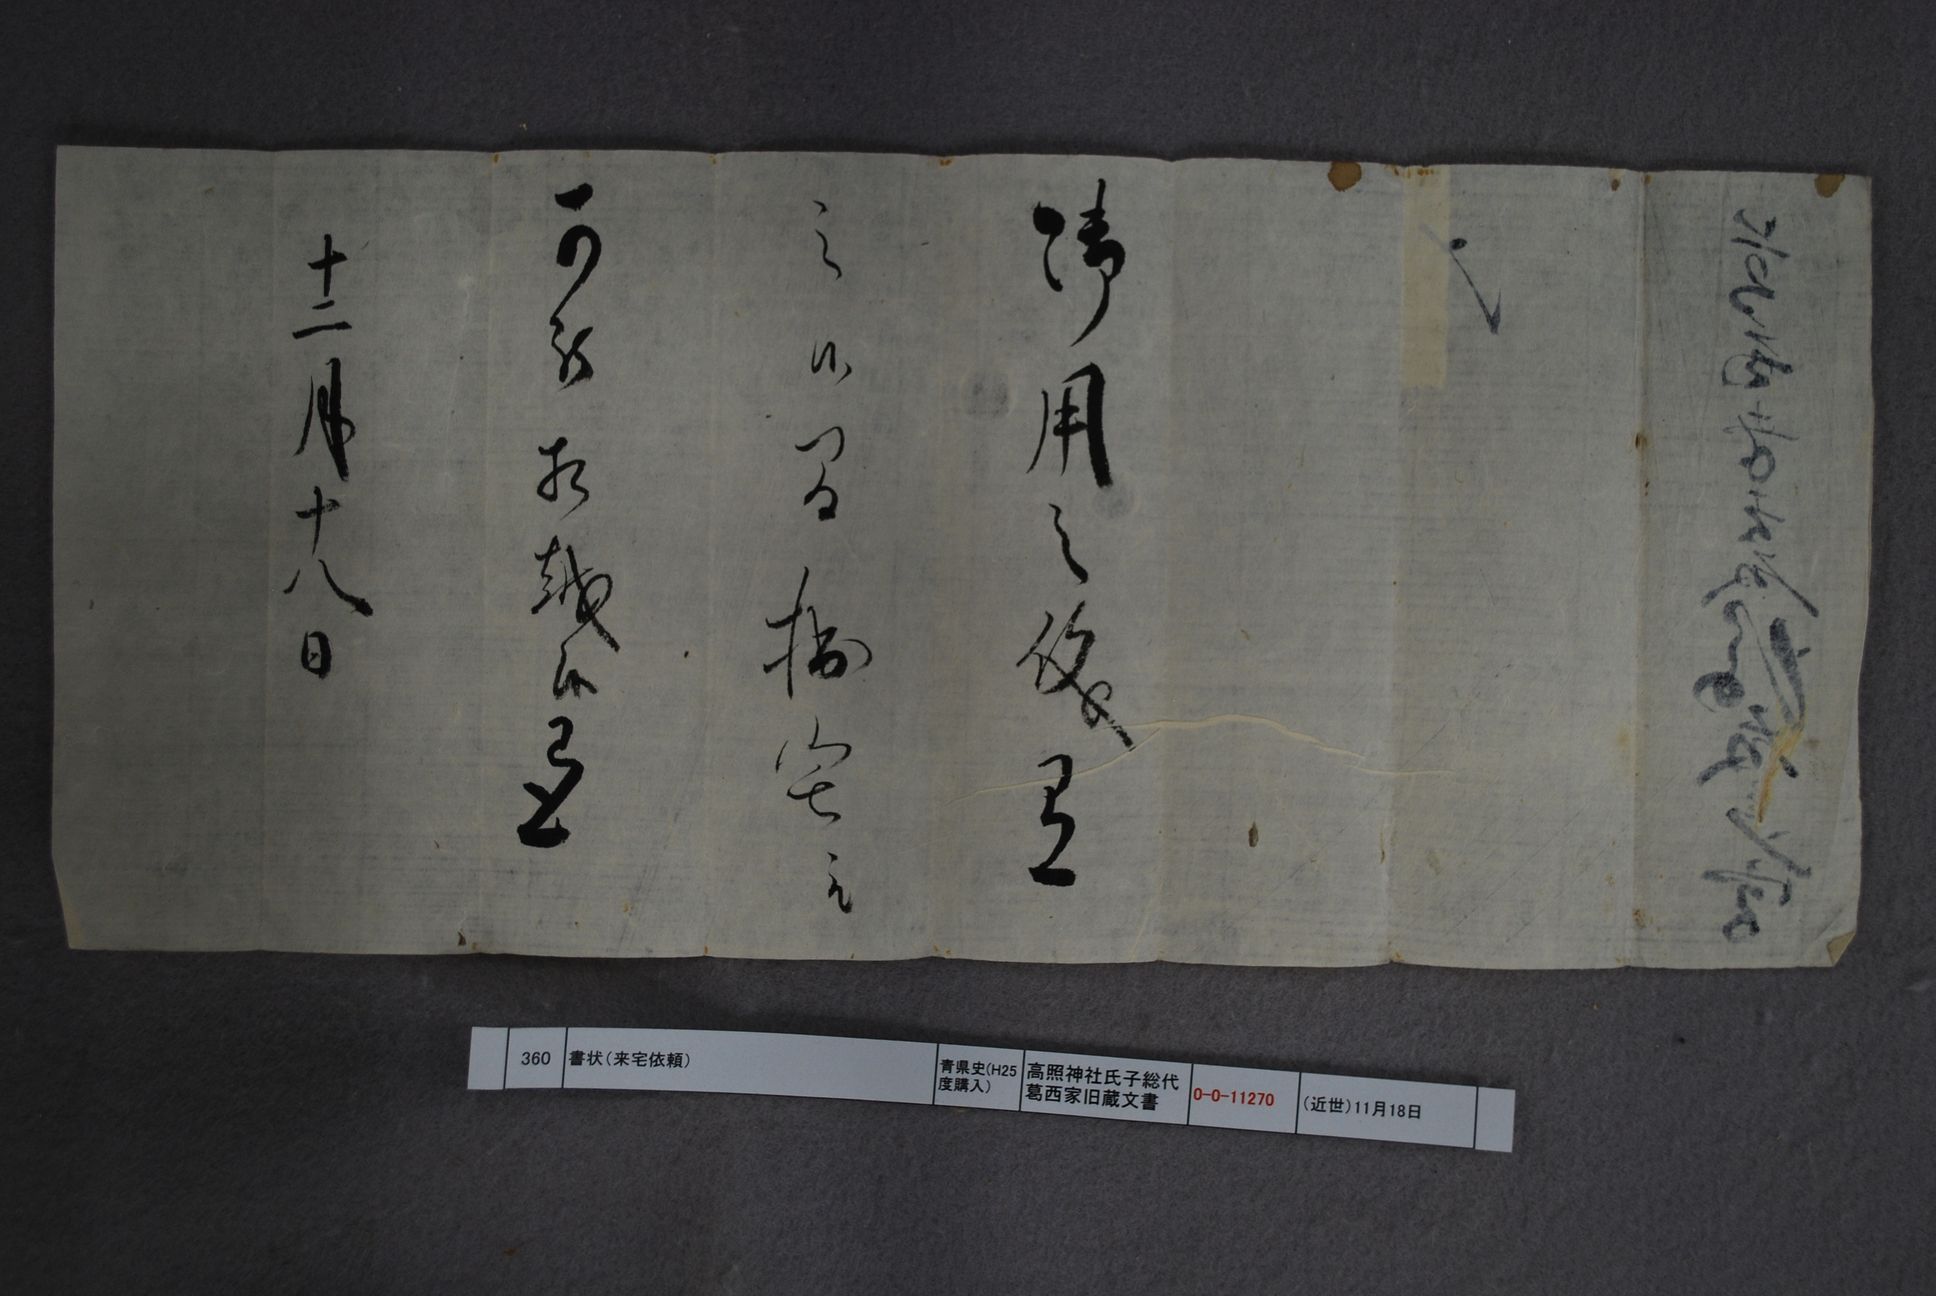 御用之儀有
之候間拙宅え
可被相越候以上
十二月十八日
360
書状(来宅依頼)
青県史(H25
度購入)
高照神社氏子総代
葛西家旧蔵文書
0-0-11270
(近世)11月18日